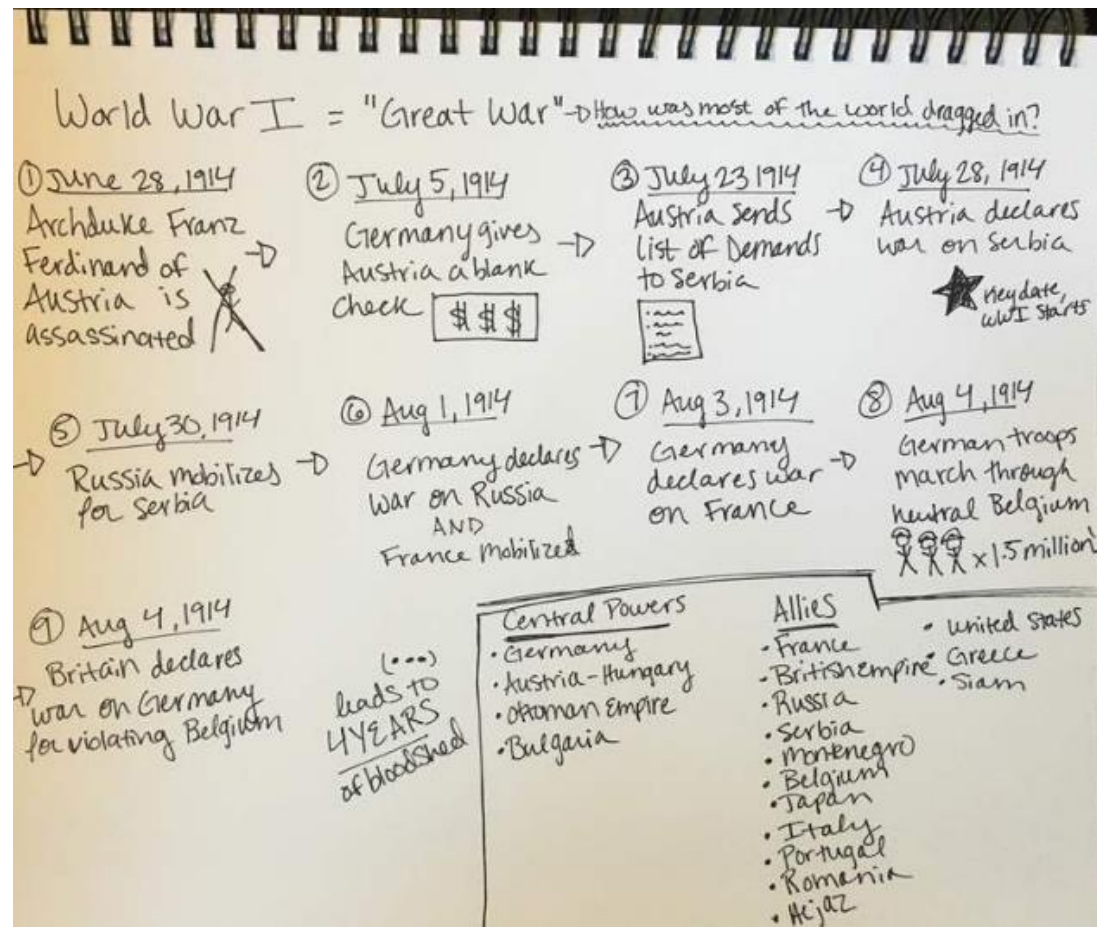 World War I = "Great War" → How was most of the world dragged in?
① June 28, 1914
Archduke Franz
Ferdinand of
Austria is
assassinated
② July 5, 1914
Germany gives
Austria a blank
check
$ $ $
③ July 23 1914
Austria sends
list of Demands
to Serbia
④ July 28, 1914
Austria declares
war on Serbia
Key date,
WWI starts
⑤ July 30, 1914
Russia mobilizes
for Serbia
⑥ Aug 1, 1914
Germany declares
war on Russia
AND
France mobilized
⑦ Aug 3, 1914
Germany
declares war
on France
⑧ Aug 4, 1914
German troops
march through
neutral Belgium
x 1.5 million
⑨ Aug 4, 1914
Britain declares
war on Germany
for violating Belgium
(...)
leads to
4 YEARS
of bloodshed
Central Powers
• Germany
• Austria-Hungary
• Ottoman Empire
• Bulgaria
Allies
• France
• British empire
• Russia
• Serbia
• Montenegro
• Belgium
• Japan
• Italy
• Portugal
• Romania
• Hejaz
• United States
• Greece
• Siam